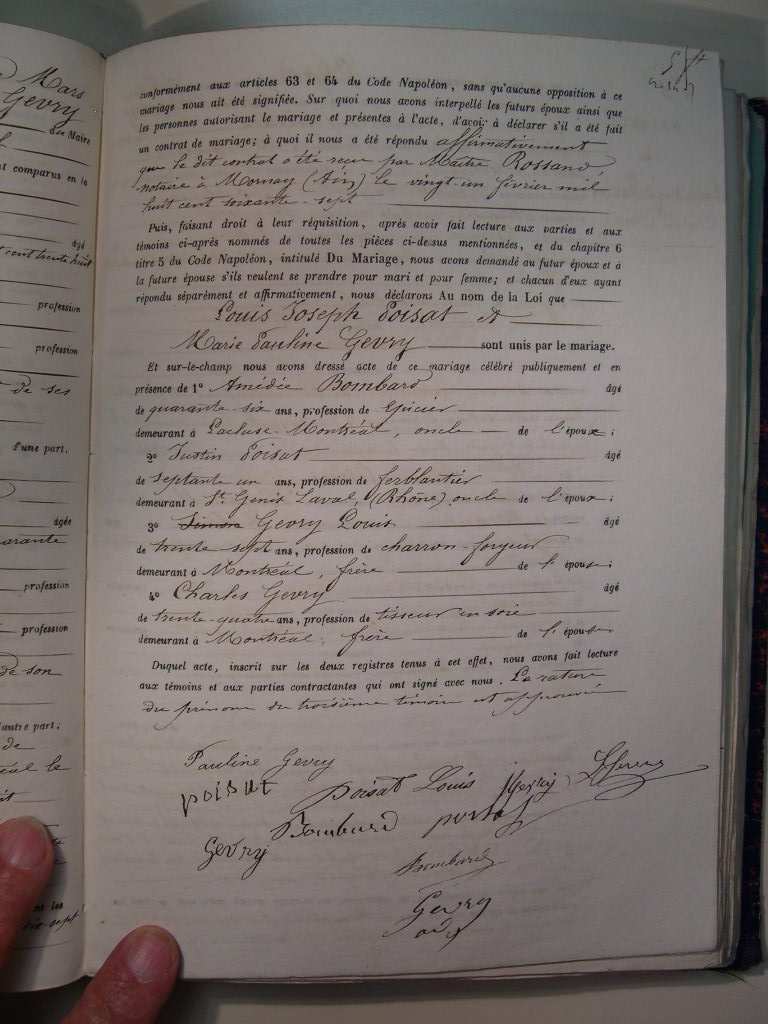 Mars
Gevry
du Maire
nt comparus en la
âgé
cent trente huit
profession
profession
de ses
d'une part.
âgée
quarante
profession
profession
de son
d'autre part;
de
le
nt les
conformément aux articles 63 et 64 du Code Napoléon, sans qu'aucune opposition à ce
mariage nous ait été signifiée. Sur quoi nous avons interpellé les futurs époux ainsi que
les personnes autorisant le mariage et présentes à l'acte, d'avoir à déclarer s'il a été fait
un contrat de mariage; à quoi il nous a été répondu affirmativement
que le dit contrat a été reçu par Maître Rossand
notaire à Mornay (Ain) le vingt-un février mil
huit cent soixante-sept
Puis, faisant droit à leur réquisition, après avoir fait lecture aux parties et aux
témoins ci-après nommés de toutes les pièces ci-dessus mentionnées, et du chapitre 6
titre 5 du Code Napoléon, intitulé Du Mariage, nous avons demandé au futur époux et à
la future épouse s'ils veulent se prendre pour mari et pour femme; et chacun d'eux ayant
répondu séparément et affirmativement, nous déclarons Au nom de la Loi que
Louis Joseph Poisat et
Marie Pauline Gevry sont unis par le mariage.
Et sur-le-champ nous avons dressé acte de ce mariage célébré publiquement et en
présence de 1º Amédée Bombard âgé
de quarante-six ans, profession de épicier
demeurant à Lacluse-Montréal, oncle de l'époux;
2º Justin Poisat âgé
de septante un ans, profession de ferblantier
demeurant à St Genis Laval, (Rhône) oncle de l'époux;
3º Simon Gevry Louis âgé
de trente-sept ans, profession de charron-forgeur
demeurant à Montréal, frère de l'épouse;
4º Charles Gevry âgé
de trente-quatre ans, profession de tisseur en soie
demeurant à Montréal, frère de l'épouse
Duquel acte, inscrit sur les deux registres tenus à cet effet, nous avons fait lecture
aux témoins et aux parties contractantes qui ont signé avec nous. La rature
du prénom du troisième témoin est approuvée
Pauline Gevry
poisat poisat Louis Gevry
Bombard
Gevry
Bombard
Gevry